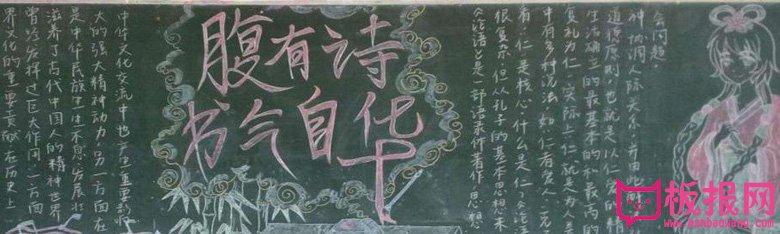 腹有诗
书气自华
界文化的重要贡献,在历史上
曾经发挥过巨大作用。一方面
滋养了古代中国人的精神世界
是中华民族生生不息、发展壮
大的强大精神动力,另一方面在
文化交流中也产生重要影响
《论语》是一部语录体著作,思想
很复杂,但从孔子的基本思想来
看,仁是核心。什么是仁,《论语
中有多种说法,如“仁者爱人”“克
复礼为仁。实际上,仁就是为人
生活确立的最基本的和最高的
道德原则,也就是以仁爱的精
神协调人际关系,由此
会问题
板报网